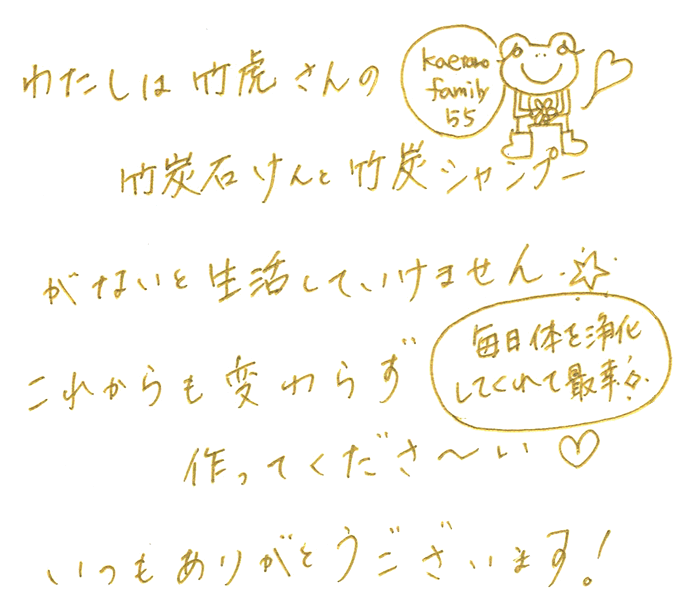 わたしは竹虎さんの
kaeruko
family
55
竹炭石けんと竹炭シャンプー
がないと生活していけません☆
これからも変わらず
毎日体を浄化
してくれて最幸です。
作ってくださ〜い♡
いつもありがとうございます!